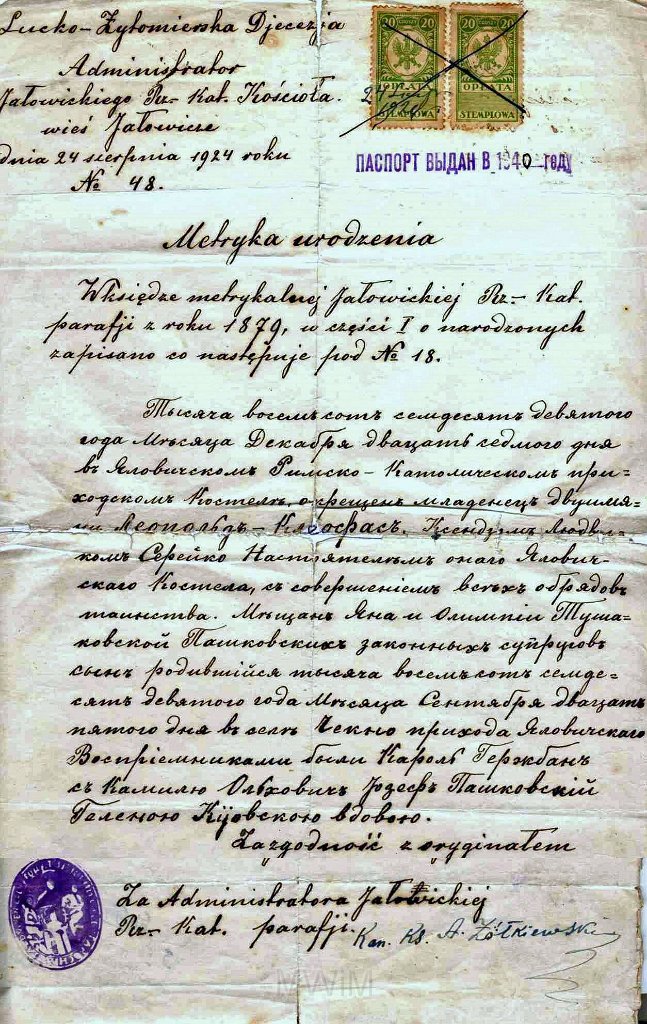 Łucko-Żytomierska Djecezja
Administrator
Jałowickiego Rz.-Kat. Kościoła.
wieś Jałowicze
dnia 24 sierpnia 1924 roku
№ 48.
20 GROSZY 20
OPŁATA
STEMPLOWA
20 GROSZY 20
OPŁATA
STEMPLOWA
ПАСПОРТ ВЫДАН В 1940 году
Metryka urodzenia
W księdze metrykalnej Jałowickiej Rz.- Kat.
parafji z roku 1879, w części I o narodzonych
zapisano co następuje pod № 18.
Тысяча восемьсотъ семдесятъ девятого
года Мѣсяца Декабря двацать седмого дня
въ Яловичскомъ Римско-Католическомъ при=
ходскомъ Костелѣ окрещенъ младенецъ двуимя=
ни Леопольдъ-Клеофасъ. Ксендзомъ Людви-
комъ Серейко Настоятелемъ онаго Ялович-
скаго Костела, съ совершеніемъ всѣхъ обрядовъ
таинства. Мѣщанъ Яна и Олимпіи Туша=
ковской Пашковскихъ законныхъ супруговъ
сынъ родившійся тысяча восемьсотъ семде=
сятъ девятого года Мѣсяца Сентября двацать
пятого дня въ селѣ Чекно прихода Яловичскаго
Воспріемниками были Кароль Гержбанъ
съ Камилю Ольховичъ Іозефъ Пашковскій
Геленою Куовскою вдовою.
Za zgodność z oryginałem
Za Administratora Jałowickiej
Rz.- Kat. parafji.
Kan. Ks. A. Żółkiewski
MWiM